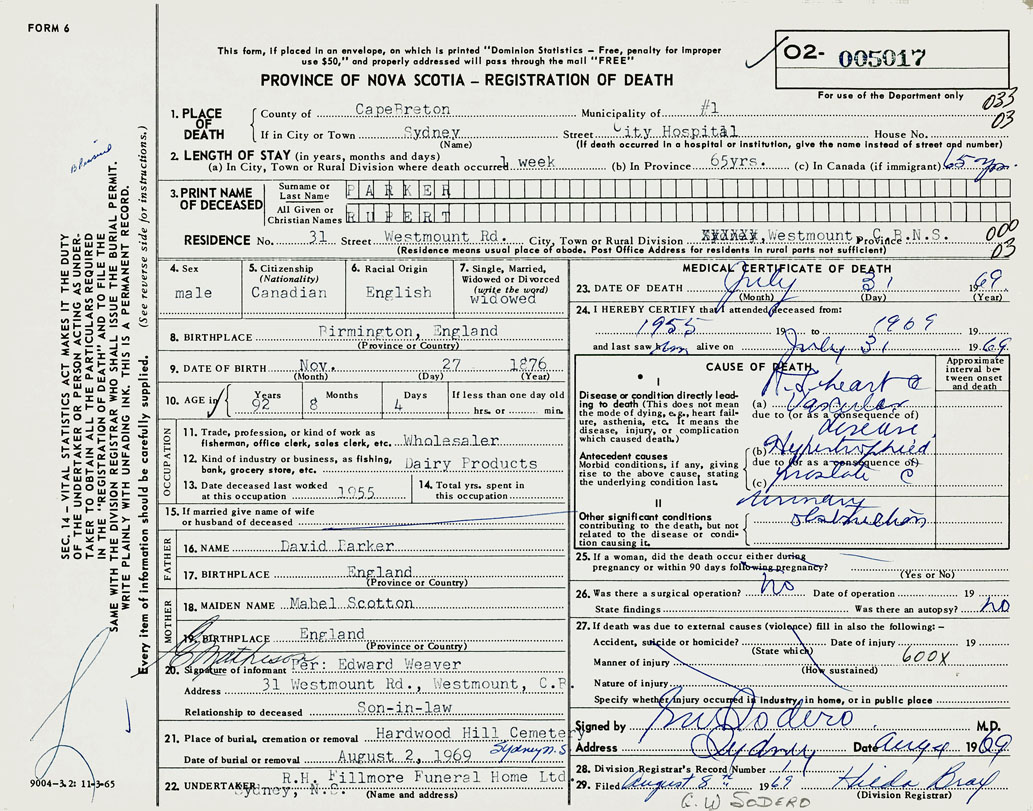 FORM 6
This form, if placed in an envelope, on which is printed "Dominion Statistics – Free, penalty for improper
use $50," and properly addressed will pass through the mail "FREE"
PROVINCE OF NOVA SCOTIA – REGISTRATION OF DEATH
O2- 005017
For use of the Department only
033
03
1. PLACE OF DEATH
County of CapeBreton Municipality of #1
If in City or Town Sydney Street City Hospital House No.
(Name) (If death occurred in a hospital or institution, give the name instead of street and number)
2. LENGTH OF STAY (in years, months and days)
(a) In City, Town or Rural Division where death occurred 1 week (b) In Province 65yrs. (c) In Canada (if immigrant) 65 yrs.
3. PRINT NAME OF DECEASED
Surname or Last Name PARKER
All Given or Christian Names RUPERT
RESIDENCE No. 31 Street Westmount Rd. City, Town or Rural Division Westmount, C.B.N.S. Province
(Residence means usual place of abode. Post Office Address for residents in rural parts not sufficient)
000
03
4. Sex
male
5. Citizenship
(Nationality)
Canadian
6. Racial Origin
English
7. Single, Married,
Widowed or Divorced
(write the word)
widowed
8. BIRTHPLACE Birmington, England
(Province or Country)
9. DATE OF BIRTH Nov. 27 1876
(Month) (Day) (Year)
10. AGE in Years 92 Months 8 Days 4 If less than one day old
hrs. or min.
OCCUPATION
11. Trade, profession, or kind of work as
fisherman, office clerk, sales clerk, etc. Wholesaler
12. Kind of industry or business, as fishing,
bank, grocery store, etc. Dairy Products
13. Date deceased last worked
at this occupation 1955
14. Total yrs. spent in
this occupation
15. If married give name of wife
or husband of deceased
FATHER
16. NAME David Parker
17. BIRTHPLACE England
(Province or Country)
MOTHER
18. MAIDEN NAME Mabel Scotton
19. BIRTHPLACE England
(Province or Country)
20. Signature of informant Per: Edward Weaver
Address 31 Westmount Rd., Westmount, C.B.
Relationship to deceased Son-in-law
21. Place of burial, cremation or removal Hardwood Hill Cemetery
Sydney N.S.
Date of burial or removal August 2, 1969
22. UNDERTAKER R.H. Fillmore Funeral Home Ltd.
Sydney, N.S. (Name and address)
MEDICAL CERTIFICATE OF DEATH
23. DATE OF DEATH July 31 1969
(Month) (Day) (Year)
24. I HEREBY CERTIFY that I attended deceased from:
1955 19 to 1969 19
and last saw him alive on July 31 1969
CAUSE OF DEATH
Approximate
interval be-
tween onset
and death
I
Disease or condition directly lead-
ing to death (This does not mean
the mode of dying, e.g., heart fail-
ure, asthenia, etc. It means the
disease, injury, or complication
which caused death.)
heart
(a) Vascular
due to (or as a consequence of)
disease
Antecedent causes
Morbid conditions, if any, giving
rise to the above cause, stating
the underlying condition last.
(b) Hypertrophied
due to (or as a consequence of)
(c) prostate c
II
urinary
obstruction
Other significant conditions
contributing to the death, but not
related to the disease or condi-
tion causing it.
25. If a woman, did the death occur either during
pregnancy or within 90 days following pregnancy?
(Yes or No)
26. Was there a surgical operation? No Date of operation 19
State findings Was there an autopsy? No
27. If death was due to external causes (violence) fill in also the following:–
Accident, suicide or homicide? Date of injury 19
(State which) 600X
Manner of injury
(How sustained)
Nature of injury
Specify whether injury occurred in industry, in home, or in public place
Signed by Sodero M.D.
Address Sydney Date Aug 4 1969
28. Division Registrar's Record Number
29. Filed August 8th 1969 Hilda Bray
(Division Registrar)
C. W SODERO
SEC. 14 – VITAL STATISTICS ACT MAKES IT THE DUTY
OF THE UNDERTAKER OR PERSON ACTING AS UNDER-
TAKER TO OBTAIN ALL THE PARTICULARS REQUIRED
IN THE "REGISTRATION OF DEATH" AND TO FILE THE
SAME WITH THE DIVISION REGISTRAR WHO SHALL ISSUE THE BURIAL PERMIT.
WRITE PLAINLY WITH UNFADING INK. THIS IS A PERMANENT RECORD.
Every item of information should be carefully supplied. (See reverse side for instructions.)
9004-3.2: 11-3-65